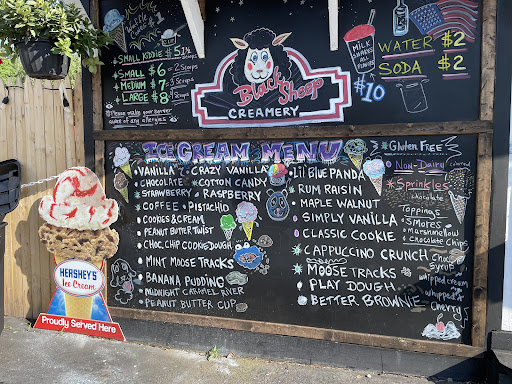 Small kiddie $5
Small $6 2 Scoops
Medium $7 3 Scoops
Large $8 4 Scoops
Please make your server
aware of any allergies
Black Sheep
CREAMERY
MILK
SHAKE
ALL
FLAVORS
$10
WATER $2
SODA $2
ICE CREAM MENU
VANILLA
CRAZY VANILLA
CHOCOLATE
*COTTON CANDY
STRAWBERRY
RASPBERRY
COFFEE
PISTACHIO
COOKIES & CREAM
PEANUT BUTTER TWIST
CHOC. CHIP COOKIE DOUGH
MINT MOOSE TRACKS
BANANA PUDDING
MIDNIGHT CARAMEL RIVER
PEANUT BUTTER CUP
Lil BLUE PANDA
RUM RAISIN
MAPLE WALNUT
SIMPLY VANILLA
CLASSIC COOKIE
CAPPUCCINO CRUNCH
MOOSE TRACKS
PLAY DOUGH
BETTER BROWNIE
*Gluten Free*
Non-Dairy
*Sprinkles
colored
chocolate
Toppings
S'mores
marshmellow
chocolate chip
Choc
Syrup
whipped cream
whipped
Cherry
HERSHEY'S
Ice Cream
Proudly Served Here